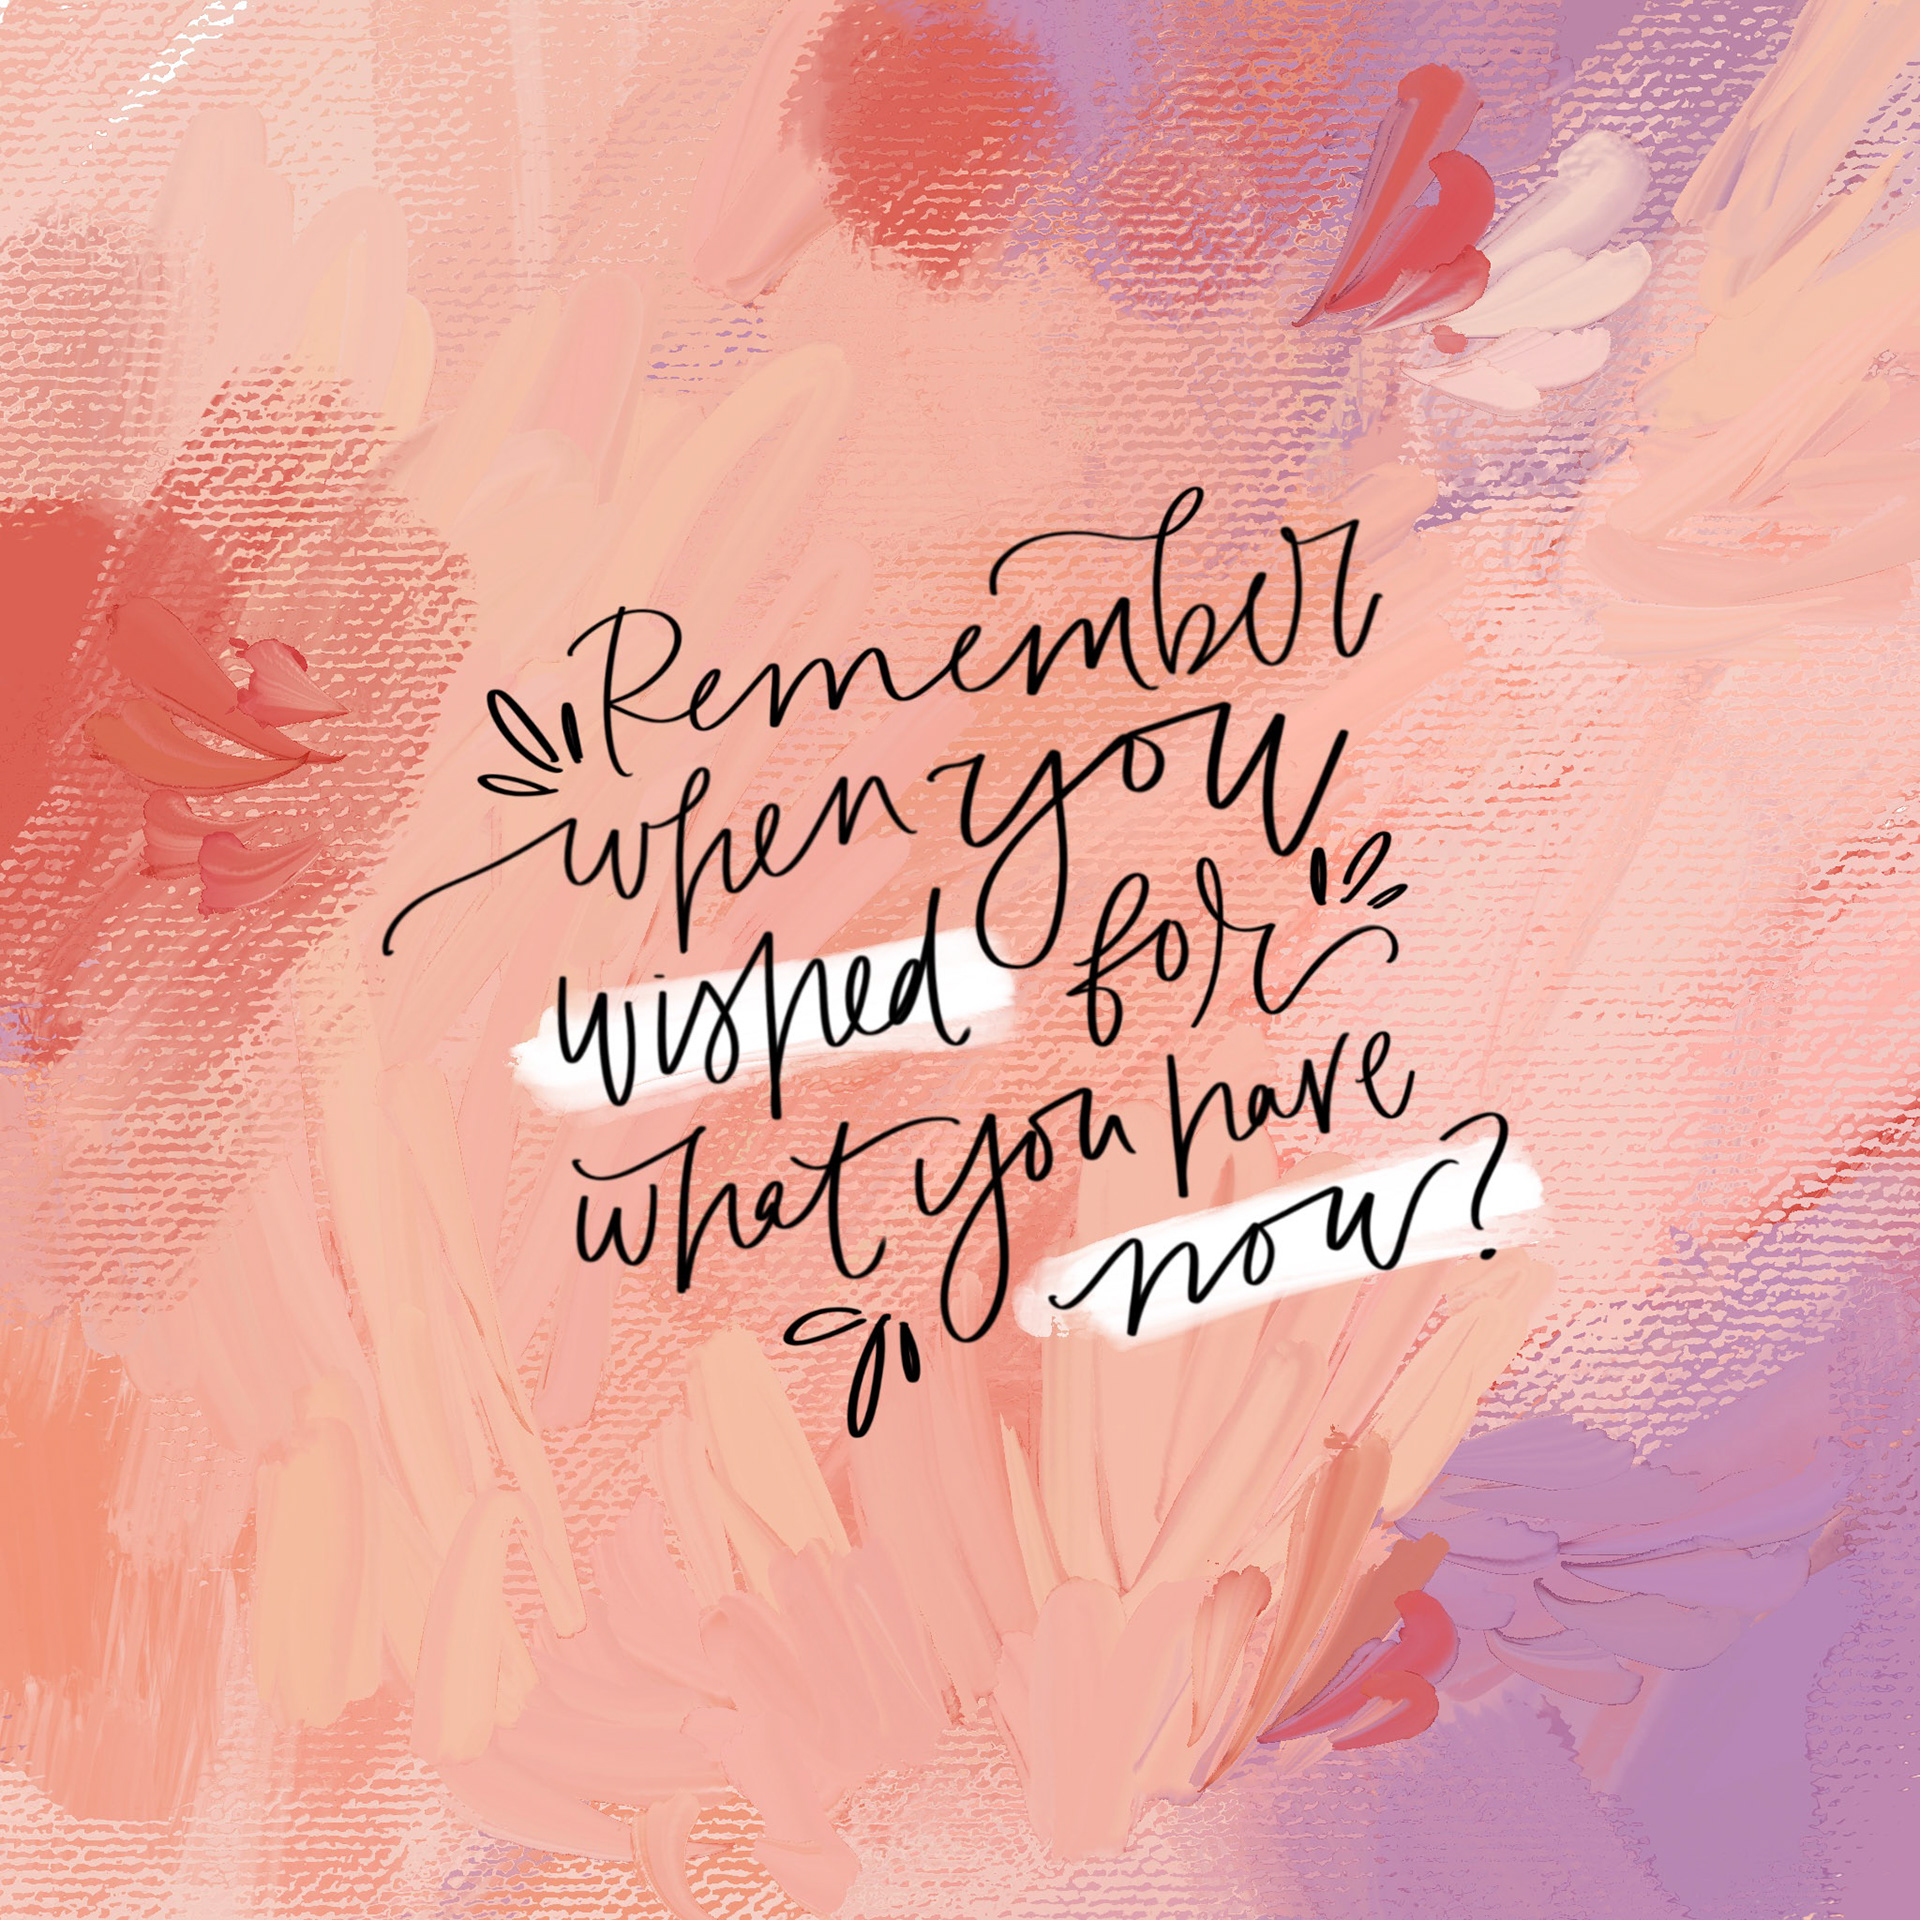 Remember
when you
wished for
what you have
now?